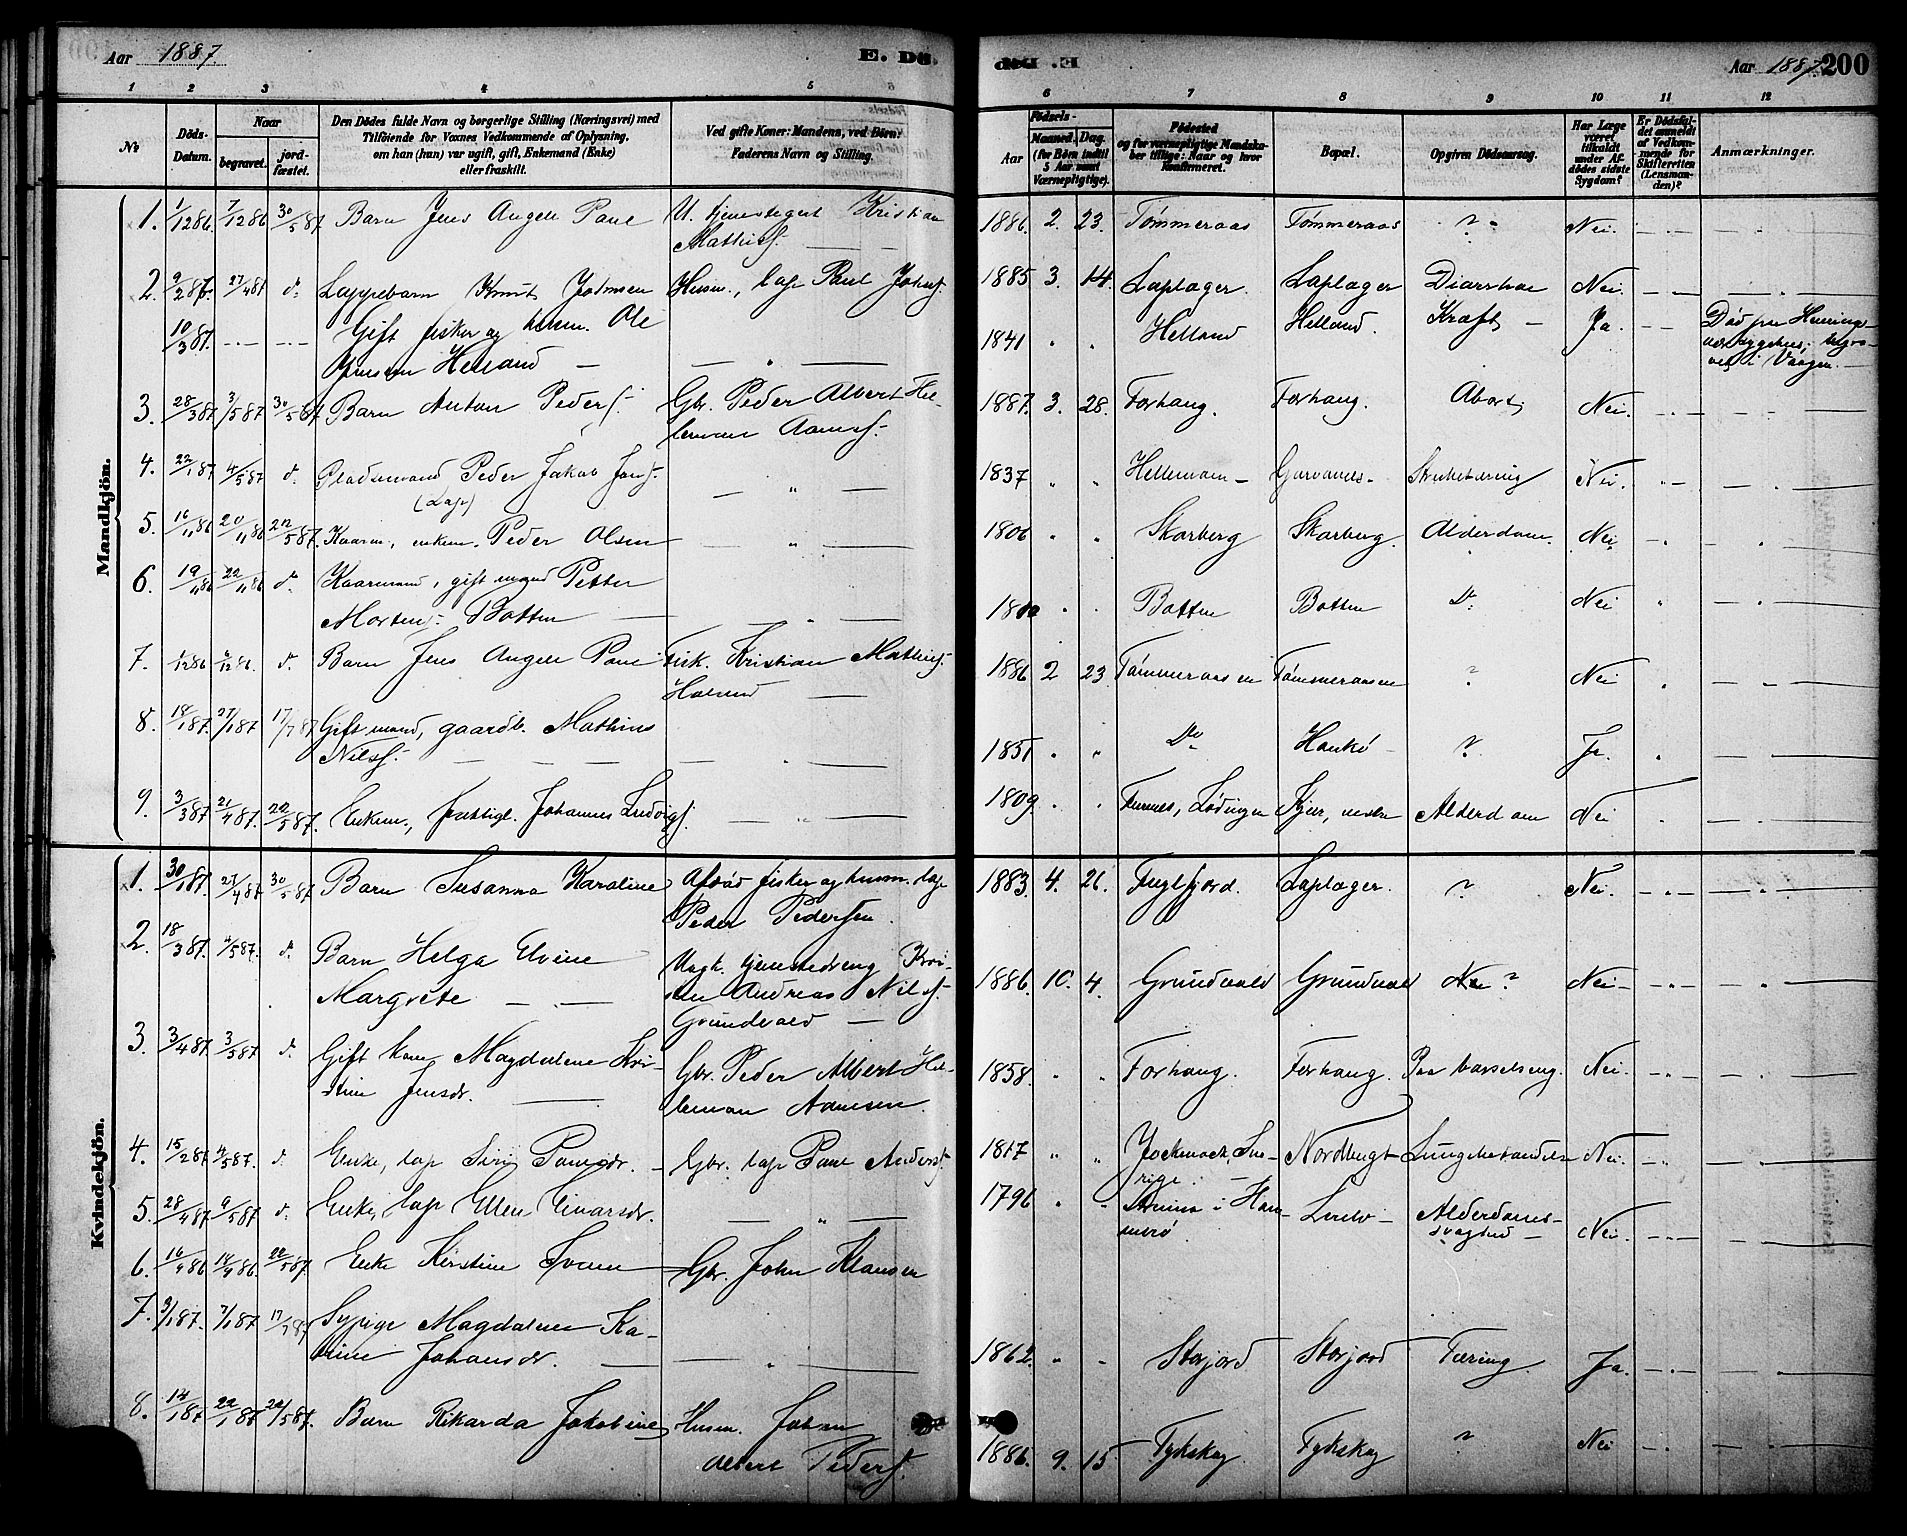 Aar 1887. E. Dø
E. Død Aar 1887. 200
1 2 3 4 5 6
6 7 8 9 10 11 12
No
Døds-
Datum.
Naar
begravet.
jord-
fæstet.
Den Dødes fulde Navn og borgerlige Stilling (Næringsvei) med
Tilføiende for Voxnes Vedkommende af Oplysning,
om han (hun) var ugift, gift, Enkemand (Enke)
eller fraskilt.
Ved gifte Koner: Mandens, ved Børn:
Faderens Navn og Stilling.
Fødsels-
Aar
Maaned. Dag.
(for Børn indtil
5 Aar samt
Værnepligtige).
Fødested
og for værnepligtige Mandska-
ber tillige: Naar og hvor
konfirmeret.
Bopæl.
Opgiven Dødsaarsag.
Har Læge
været
tilkaldt
under Af-
dødes sidste
Sygdom?
Er Dødsfal-
det anmeldt
af Vedkom-
mende for
Skifteretten
(Lensman-
den)?
Anmærkninger.
Mandkjön.
1. 1/12 86. 7/12 86 30/5 87 Barn Jens Angell Paul U. tjenestegut Kristian 1886. 2. 23. Tømmeraas Tømmeraas ? Nei.
Mathisf.
2. 9/2 87. 27/4 87 d. Lappebarn Knut Johnsen Husm., lap Paul Johnsf. 1885 3. 14. Laplager. Laplager Diarrhae Nei.
10/3 87. Gift fisker og husm. Ole 1841 Helland Helland. Kræft Ja. Død paa Henings-
Helland vær sygehus; begra-
vet i Vaagen.
3. 28/3 87. 3/5 87 30/5 87 Barn Anton Pedersf. Gbr. Peder Albert Hel- 1887. 3. 28. Forhaug. Forhaug. Abort Nei.
leman Aamsf.
4. 22/1 87 4/5 87 d. Pladsmand Peder Jakob Jonsf. 1837 Hellemoen Nei.
(Lap)
5. 16/11 86 20/11 86 22/5 87. Kaarm., enkem. Peder Olsen 1806 Skarberg Skarberg. Alderdom. Nei.
6. 19/11 86 22/11 86 d. Kaarmand, gift mand Petter 1802 Botten Botten Do. Nei
Mortensf. Botten
7. 1/12 86 /12 86. d. Barn Jens Angell Paul Fisk. Kristian Mathisf. 1886 2 23 Tømmeraasen Tømmeraasen ? Nei
8. 18/1 87. 27/1 87 17/7 87 Gift mand, gaardb. Mathias 1851 Do Haukø ? Ja.
Nilsf.
9. 3/3 87 21/4 87. 22/5 87. Enkem., fattigl. Johannes Ludvigsf. 1809. Furnes, Lødingen Kjær, nedre Alderdom Nei
Kvindekjön.
1. 30/1 87. 27/4 87 30/5 87 Barn Susanna Karoline Afdød fisker og husm. lap 1883. 4. 26. Fuglfjord. Laplager. ? Nei.
Peder Pedersen.
2. 18/3 87. 4/5 87. d. Barn Helga Elvine Ungk. tjenestedreng Kri- 1886. 10. 4. Grundvald Grundvald ? Nei
Margrete stian Andreas Nilsf.
Grundvald
3. 3/4 87. 3/5 87 d. Gift kone Magdalene Kri- Gbr. Peder Albert Hel- 1858. Forhaug. Forhaug. Paa barselseng. Nei.
stine Jensdr. leman Aamsen.
4. 15/2 87 4/5 87. d. Enke, lap Siri Paulsdr. Gbr. lap Paul Andersf. 1817 Jockmock, Sve- Nordbugt Lungebetændelse Nei.
rige.
5. 28/4 87 9/5 87 d. Enke, lap Ellen Einarsdr. 1796 i Ham- Alderdoms-
merø svaghed Nei.
6. 16/4 86 14/9 86. 22/5 87. Enke Kirstine Gbr. John Klausen
7. 3/1 87. 7/1 87 17/7 87 Sypige Magdalene Ka- 1862. Storjord Storjord Tæring Ja.
trine Johansdr.
8. 14/1 87 22/1 87 22/5 87. Barn Rikarda Jakobine Husm. Johan 1886. 9. 15 ? Nei
Albert Pedersf.